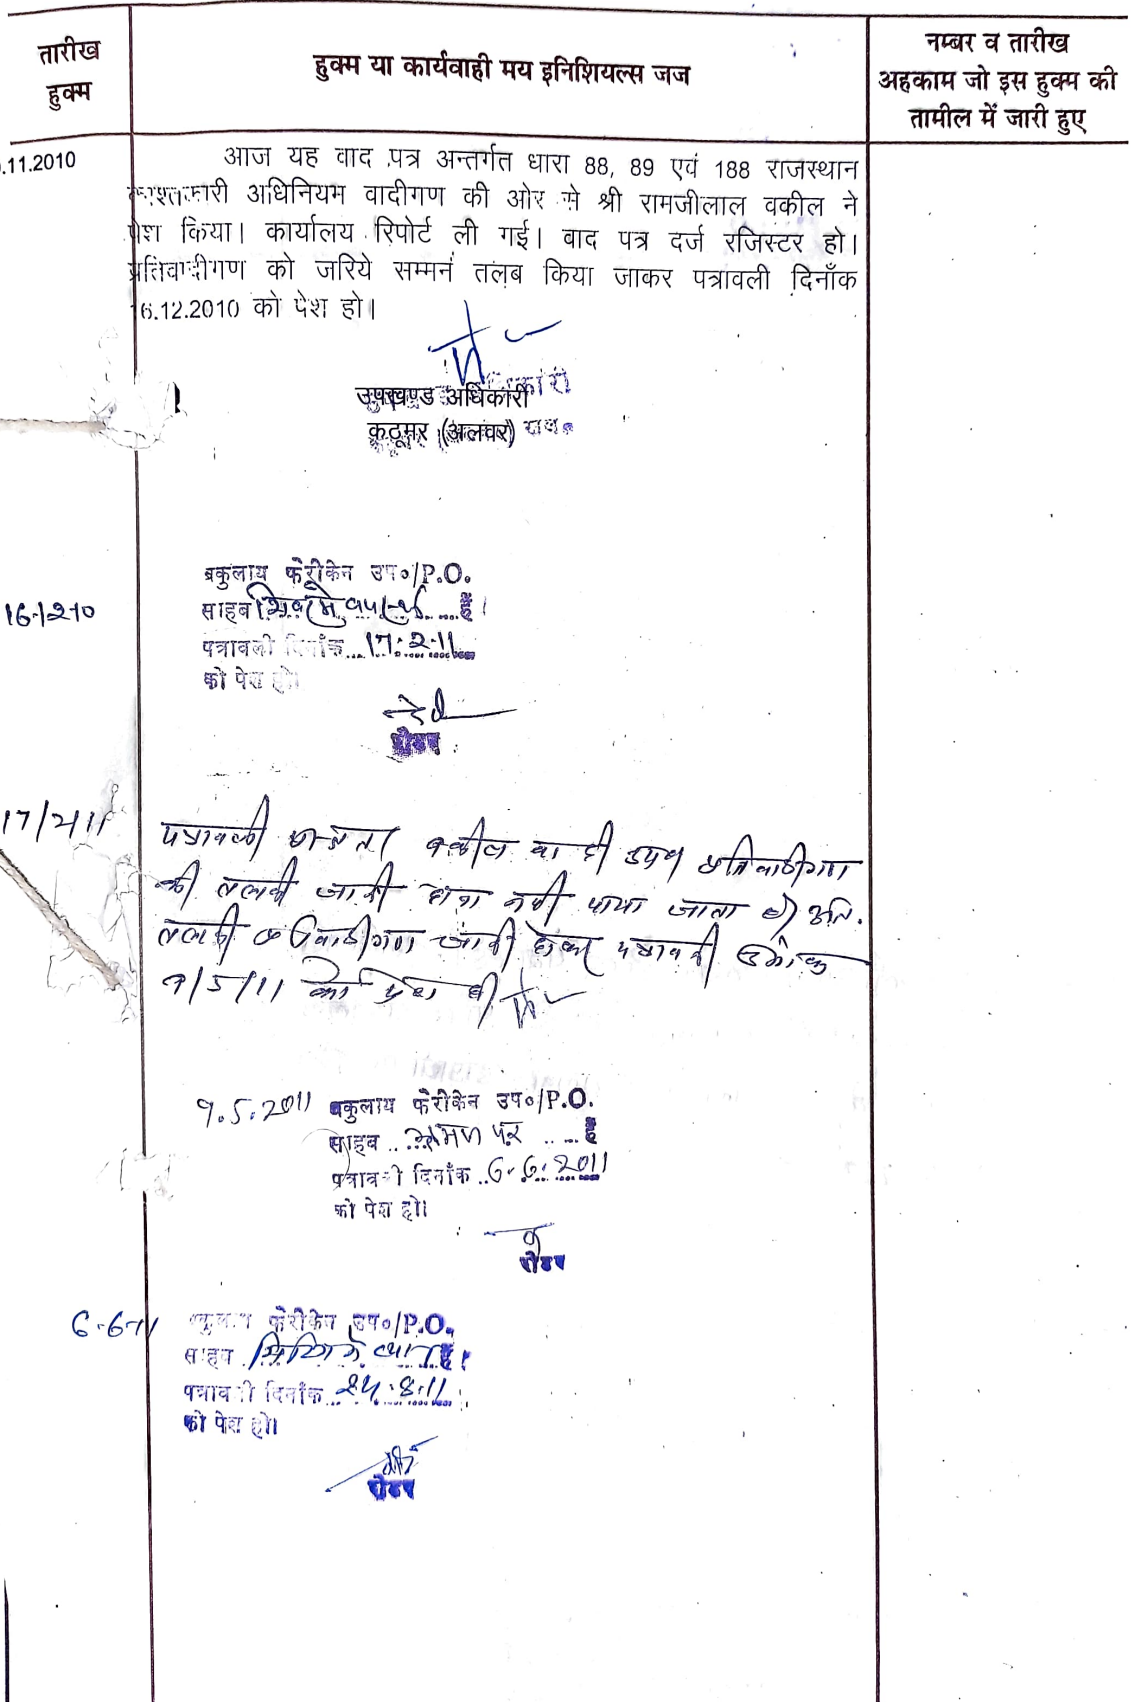 तारीख
हुक्म
हुक्म या कार्यवाही मय इनिशियल्स जज
नम्बर व तारीख
अहकाम जो इस हुक्म की
तामील में जारी हुए
.11.2010
आज यह वाद पत्र अन्तर्गत धारा 88, 89 एवं 188 राजस्थान
काश्तकारी अधिनियम वादीगण की ओर से श्री रामजीलाल वकील ने
पेश किया। कार्यालय रिपोर्ट ली गई। वाद पत्र दर्ज रजिस्टर हो।
प्रतिवादीगण को जरिये सम्मन तलब किया जाकर पत्रावली दिनाँक
16.12.2010 को पेश हो।
उपखण्ड अधिकारी
कठूमर (अलवर) राज.
16-12-10
वकुलाय फेरीकेन उप०/P.O.
साहब है।
पत्रावली दिनाँक 17.2.11
को पेश हो।
रीडर
17/2/11
पत्रावली वकील वादी उपस्थ प्रतिवादीगण
की तलबी जारी होना नहीं पाया जाता है।
तलबी प्रतिवादीगण जारी होकर पत्रावली दिनांक
9/5/11 को पेश हो
9.5.2011
वकुलाय फेरीकेन उप०/P.O.
साहब भ्रमण पर है
पत्रावली दिनाँक 6.6.2011
को पेश हो।
रीडर
6-6-11
वकुलाय फेरीकेन उप०/P.O.
साहब है।
पत्रावली दिनाँक 24.8.11
को पेश हो।
रीडर